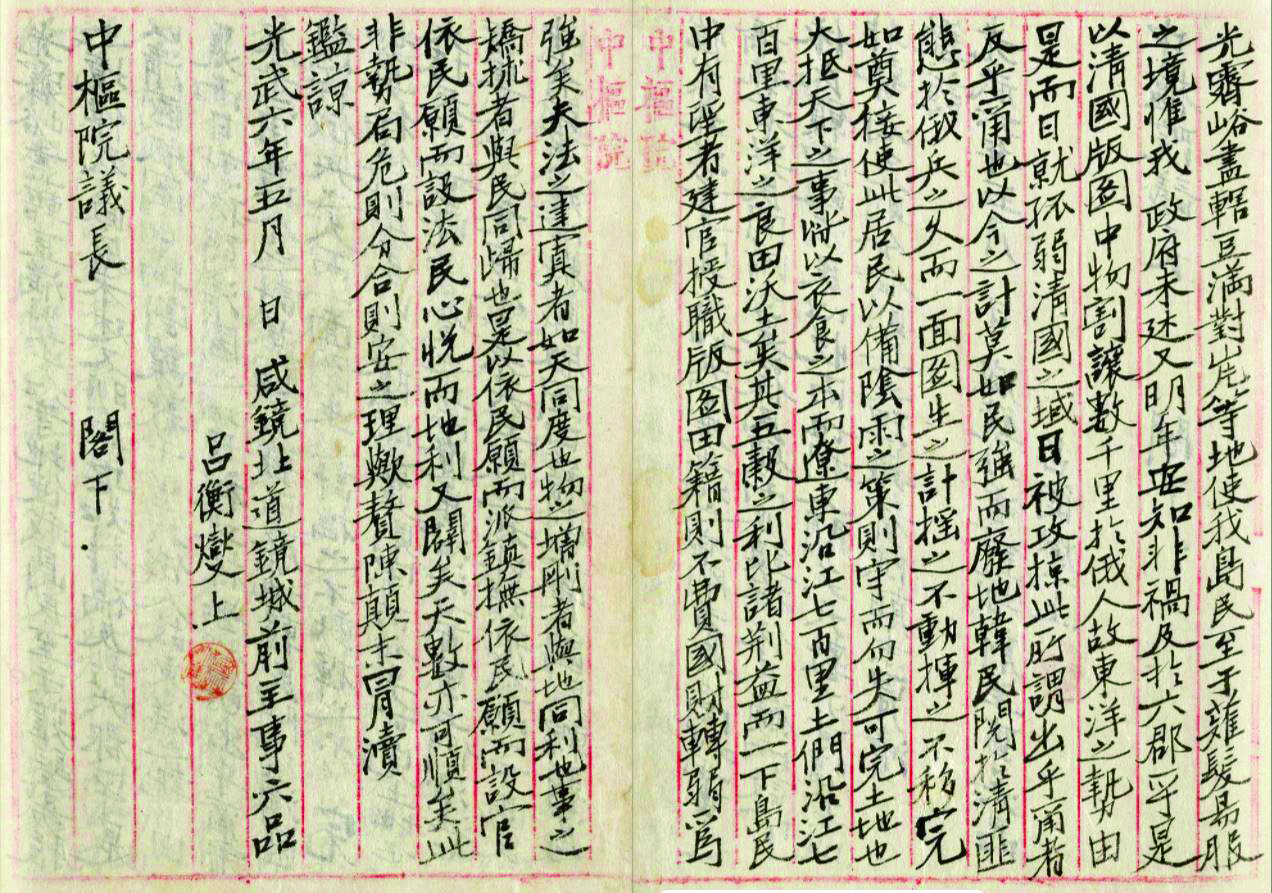 光霽峪盡轄豆滿對岸等地使我島民至于薙髮易服
之境惟我 政府未燃又明年安知非禍及於六郡乎是
以清國版圖中物割讓數千里於俄人故東洋之勢由
是而日就孤弱清國之域日被攻掠此所謂出乎甭者
反乎甭也以今之計莫如民強而廢地韓民閱於清匪
憊於俄兵之久而一面圖生之計搖之不動揮之不移完
如奠接使此居民以備陰雨之策則守而勿失可完土地也
大抵天下之事皆以衣食之本而遼東沿江七百里土們沿江七
百里東洋之良田沃土矣其五穀之利比諸荆益而一下島民
中有望者建官授職版圖田籍則不費國財轉弱爲
中樞院
中樞院
強矣夫法之違寘者如天同度也物之堈剛者與地同利也事之
矯捄者與民同歸也是以依民願而派鎮撫依民願而設官
依民願而設法民心悅而地利又闢矣天數亦可順矣此
非勢局危則分合則安之理歟贅陳顛末冐瀆
鑑諒
光武六年五月 日 咸鏡北道鏡城前主事六品
呂衡燮 上
中樞院議長 閣下.